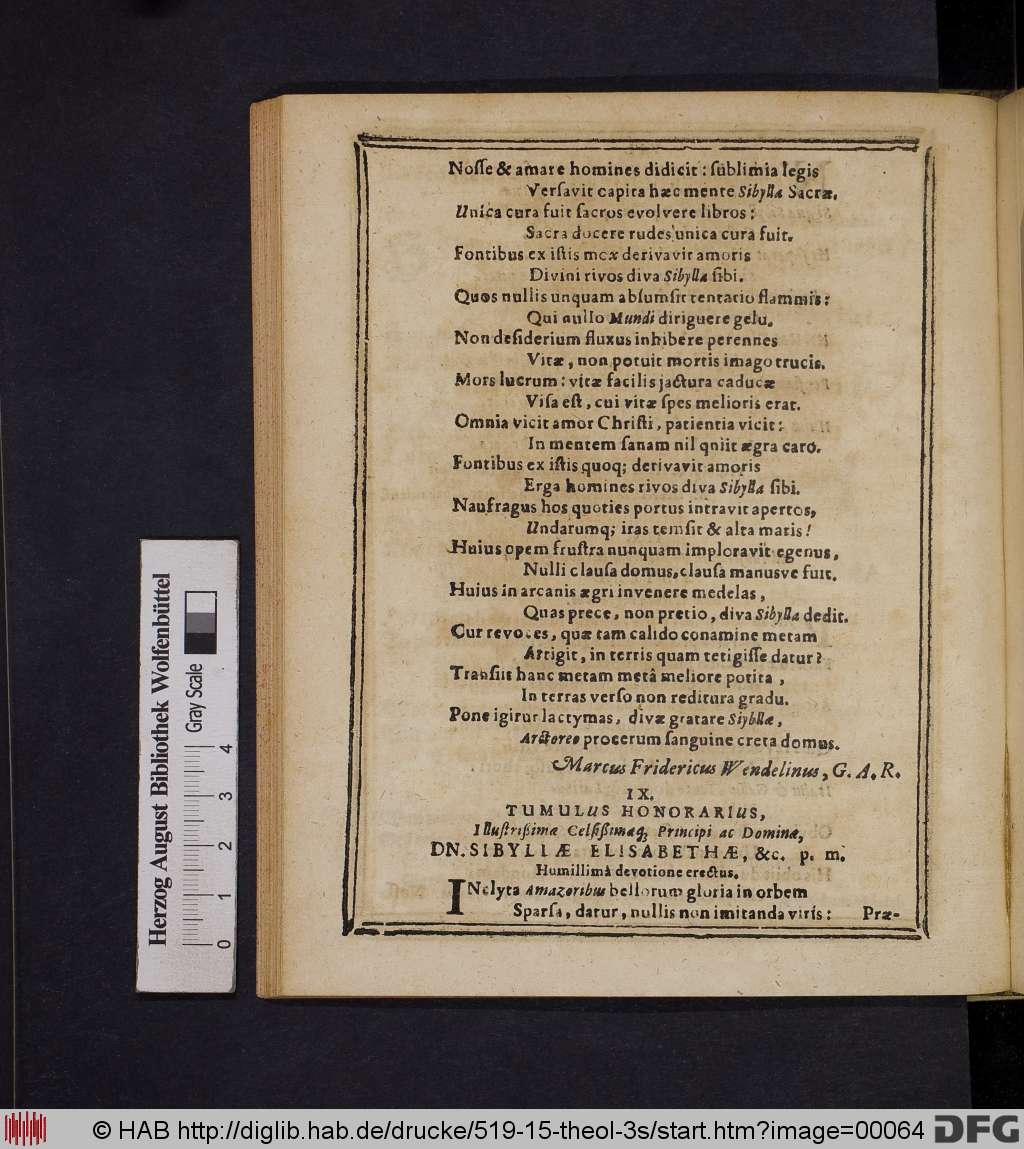 Noſſe & amare homines didicit: ſublimia legis
Verſavit capita hæc mente Sibylla Sacræ.
Unica cura fuit ſacros evolvere libros:
Sacra docere rudes unica cura fuit.
Fontibus ex iſtis mox derivavit amoris
Divini rivos diva Sibylla ſibi.
Quos nullis unquam abſumſit tentatio flammis:
Qui nullo Mundi diriguere gelu.
Non deſiderium fluxus inhibere perennes
Vitæ, non potuit mortis imago trucis.
Mors lucrum: vitæ facilis jactura caducæ
Viſa eſt, cui vitæ ſpes melioris erat.
Omnia vicit amor Chriſti, patientia vicit:
In mentem ſanam nil qniit ægra caro.
Fontibus ex iſtis quoq; derivavit amoris
Erga homines rivos diva Sibylla ſibi.
Naufragus hos quoties portus intravit apertos,
Undarumq; iras temſit & alta maris!
Huius opem fruſtra nunquam imploravit egenus,
Nulli clauſa domus, clauſa manusve fuit.
Huius in arcanis ægri invenere medelas,
Quas prece, non pretio, diva Sibylla dedit.
Cur revoces, quæ tam calido conamine metam
Attigit, in terris quam tetigiſſe datur?
Tranſiit hanc metam metâ meliore potita,
In terras verſo non reditura gradu.
Pone igitur lactymas, divæ gratare Siyblla,
Arctoreo procerum ſanguine creta domus.
Marcus Fridericus Wendelinus, G. A. R.
IX.
TUMULUS HONORARIUS,
Illuſtriſſimæ Celſiſſimæq; Principi ac Dominæ,
DN. SIBYLLÆ ELISABETHÆ, &c. p. m.
Humillimâ devotione erectus.
INclyta Amazonibus bellorum gloria in orbem
Sparſa, datur, nullis non imitanda viris:
Præ-
Herzog August Bibliothek Wolfenbüttel
Gray Scale
0 1 2 3 4
© HAB http://diglib.hab.de/drucke/519-15-theol-3s/start.htm?image=00064
DFG